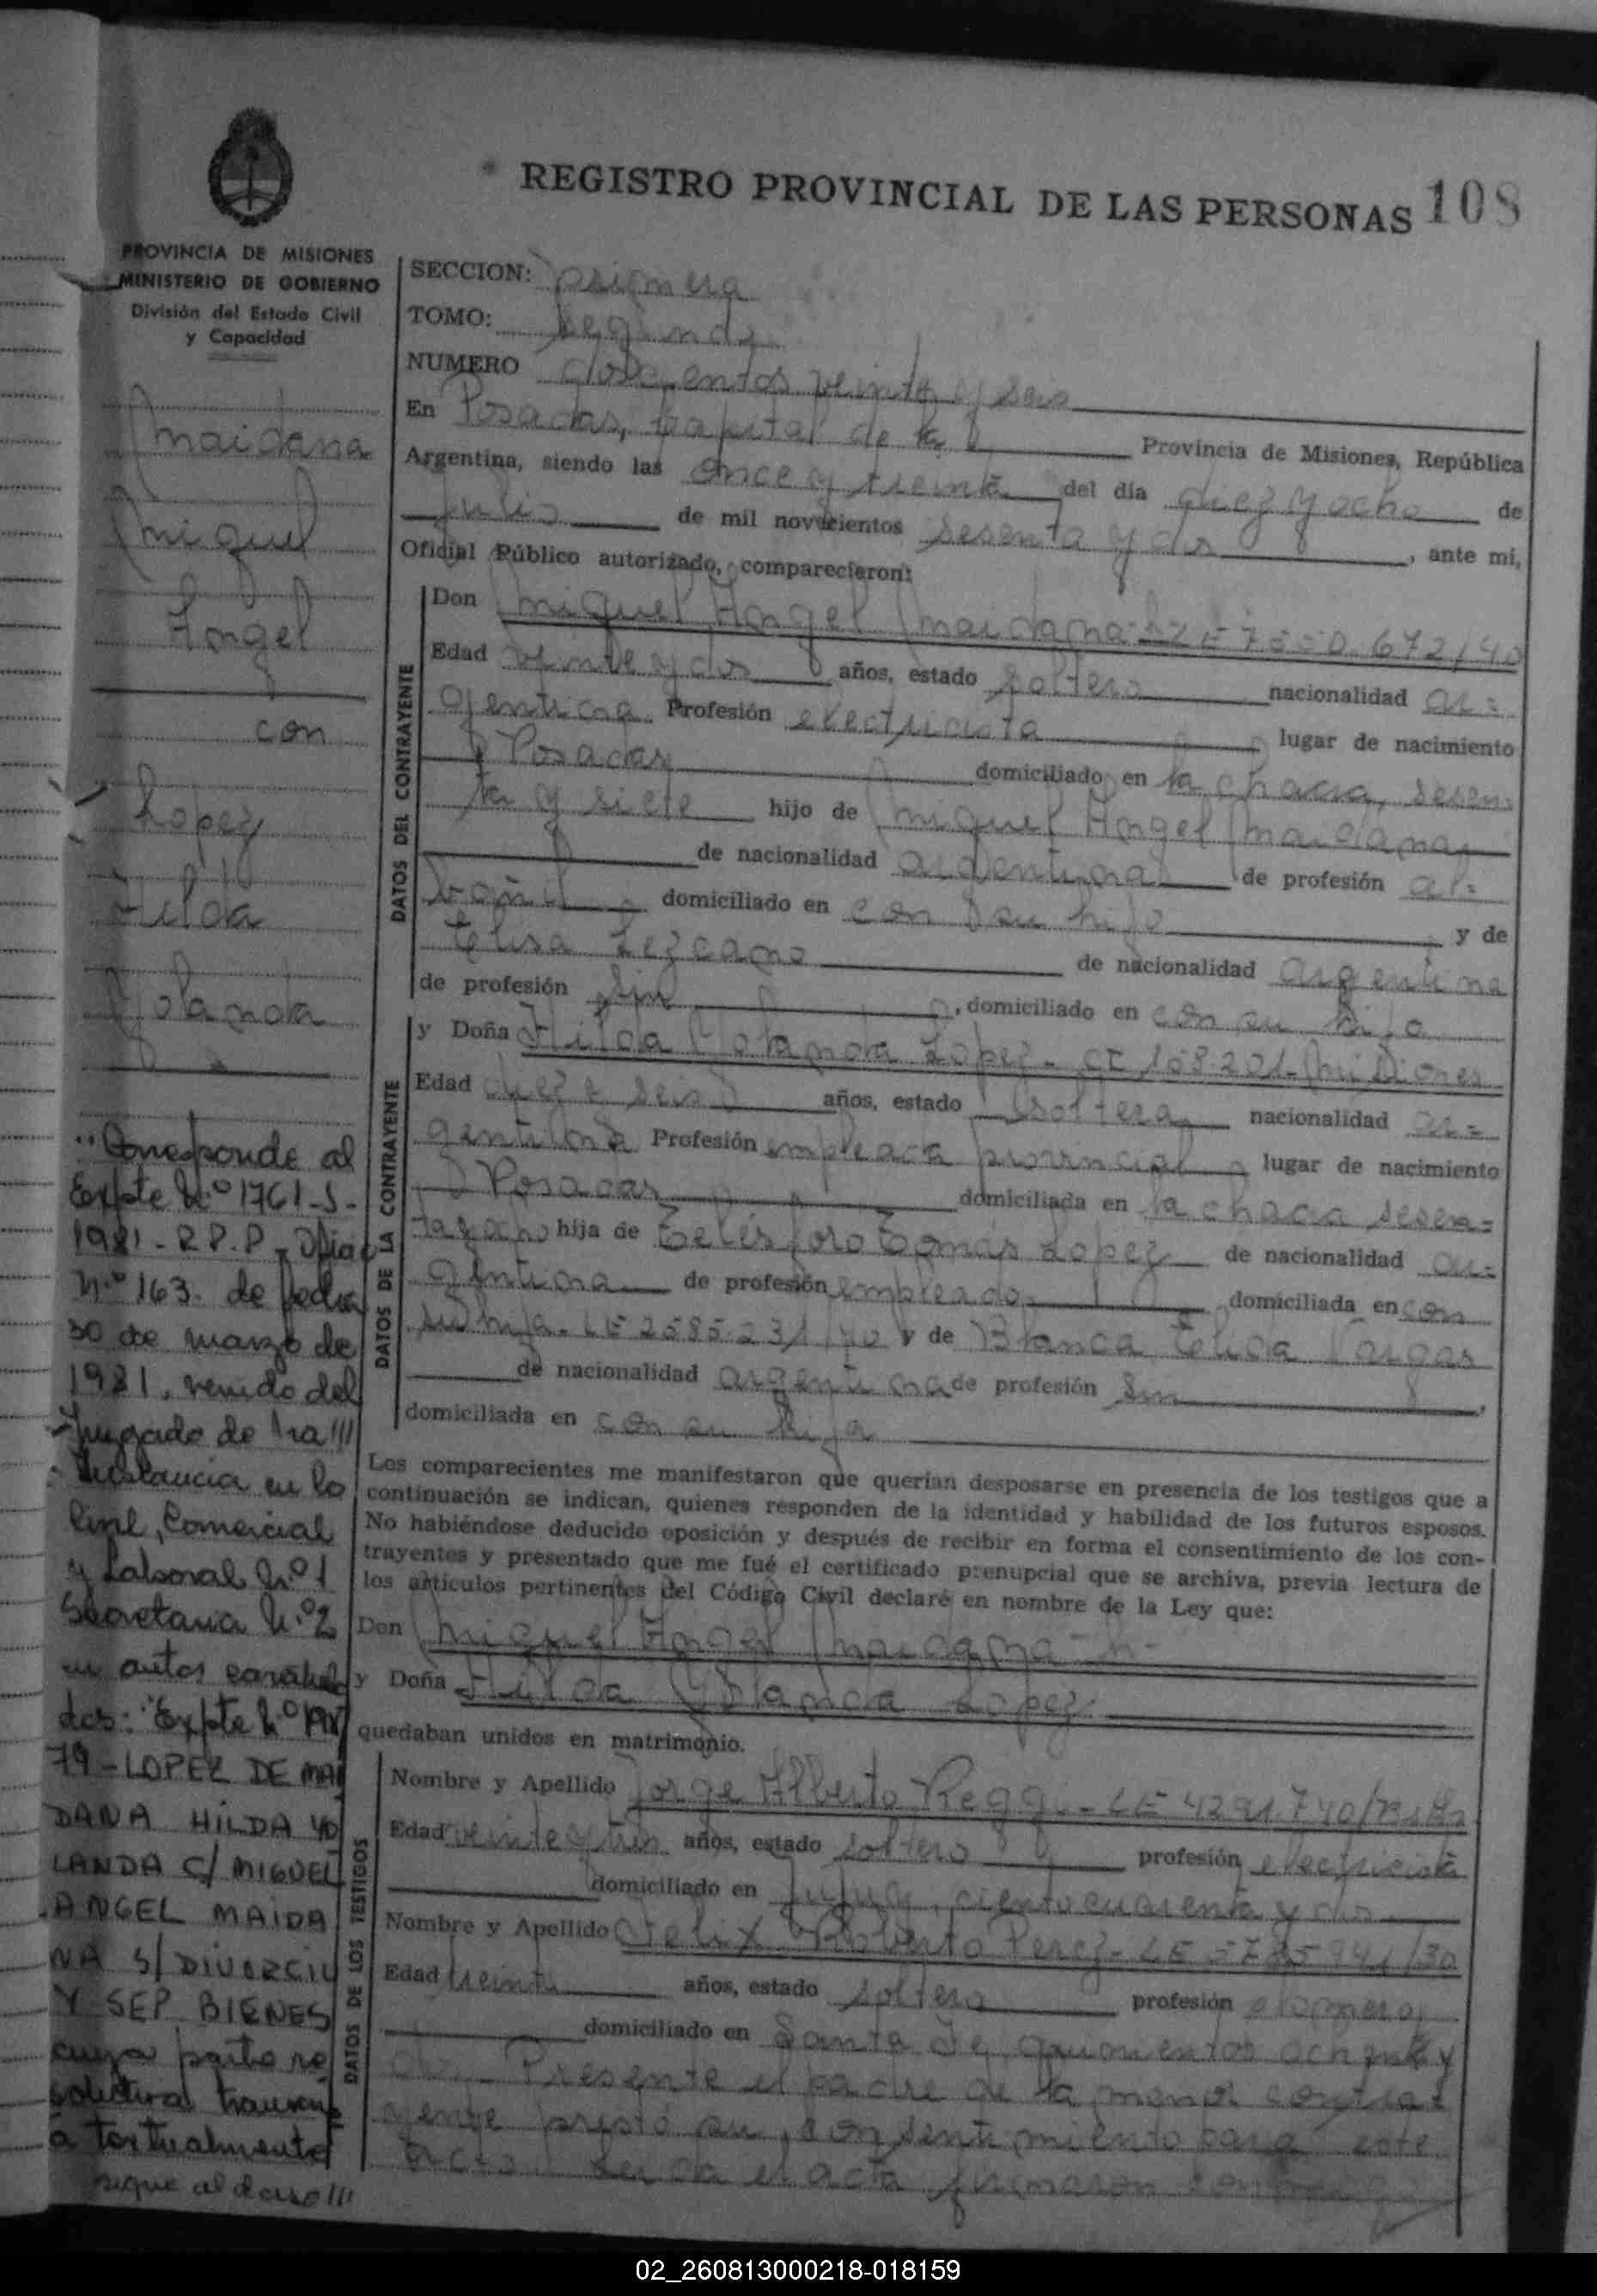 REGISTRO PROVINCIAL DE LAS PERSONAS 108
PROVINCIA DE MISIONES
MINISTERIO DE GOBIERNO
División del Estado Civil
y Capacidad
Maidana
Miguel
Angel
con
Lopez
Hilda
Yolanda
"Corresponde al
Expte N.º 1761-S-
1981 - R.P.P.
N.º 163. de fecha
30 de marzo de
1981, venido del
Juzgado de 1ra
Instancia en lo
Civil, Comercial
y Laboral N.º 1
Secretaria N.º 2
en autos caratula
dos: "Expte N.º
79 - LOPEZ DE MAI
DANA HILDA YO
LANDA C/ MIGUEL
ANGEL MAIDA
NA S/ DIVORCIO
Y SEP BIENES
cuya parte re
solutiva
a textualmente
sigue al dorso///
SECCION: primera
TOMO: segundo
NUMERO doscientos veinte y seis
En Posadas, Capital de la Provincia de Misiones, República
Argentina, siendo las once y treinta del día diez y ocho de
Julio de mil novecientos sesenta y dos, ante mi,
Oficial Público autorizado, comparecieron:
DATOS DEL CONTRAYENTE
Don Miguel Angel Maidana 672/40
Edad veinte y dos años, estado soltero nacionalidad ar=
gentina Profesión electricista lugar de nacimiento
Posadas domiciliado en la chacra sesen=
ta y siete hijo de Miguel Angel Maidana
de nacionalidad argentina de profesión al=
bañil domiciliado en con su hijo y de
Elisa Lezcano de nacionalidad argentina
de profesión sin, domiciliado en con su hijo
DATOS DE LA CONTRAYENTE
y Doña Hilda Yolanda Lopez - CI 108.201 - Misiones
Edad diez y seis años, estado soltera nacionalidad ar=
gentina Profesión empleada provincial lugar de nacimiento
Posadas domiciliada en la chacra sesen=
ta y ocho hija de Telésforo Tomás Lopez de nacionalidad ar=
gentina de profesión empleado domiciliada en con
su hija - LE 2585.231/40 y de Blanca Elida Vargas
de nacionalidad argentina de profesión sin,
domiciliada en con su hija
Los comparecientes me manifestaron que querían desposarse en presencia de los testigos que a
continuación se indican, quienes responden de la identidad y habilidad de los futuros esposos.
No habiéndose deducido oposición y después de recibir en forma el consentimiento de los con-
trayentes y presentado que me fué el certificado prenupcial que se archiva, previa lectura de
los artículos pertinentes del Código Civil declaré en nombre de la Ley que:
Don Miguel Angel Maidana
y Doña Hilda Yolanda Lopez
quedaban unidos en matrimonio.
DATOS DE LOS TESTIGOS
Nombre y Apellido Jorge Alberto Reggi - LE 4291.740
Edad veinte y tres años, estado soltero profesión electricista
domiciliado en Jujuy, ciento cuarenta y dos
Nombre y Apellido Felix Roberto Perez - LE
Edad treinta años, estado soltero profesión plomero,
domiciliado en Santa Fe quinientos ochenta y
dos. Presente el padre de la menor contra=
yente prestó su consentimiento para este
acto. Leida el acta firmaron
02_260813000218-018159